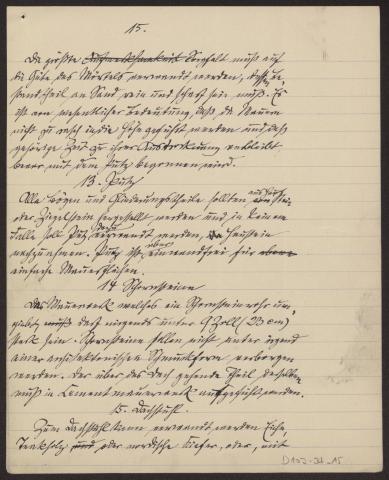 15.
Die größte Aufmerksamkeit Sorgfalt muß auf
die Güte des Mörtels verwandt werden, dessen Be-
standtheil an Sand rein und scharf sein muß. Es
ist von wesentlicher Bedeutung, daß die Mauern
nicht zu rasch in die Höhe geführt werden und daß
gehörige Zeit zu ihrer Austrocknung verbleibt
bevor mit dem Putz begonnen wird.
13. Putz
Alle Bögen und Gliederungstheile sollten aus Hau-
oder Ziegelstein hergestellt werden und in keinem
Falle soll Putz dazu verwandt werden, um Haustein
nachzuahmen. Putz ist aber einwandfrei für
einfache Mauerflächen.
14 Schornsteine
Das Mauerwerk welches ein Schornsteinrohr um-
giebt muß darf nirgends unter 9 Zoll (23 cm)
stark sein. Schornsteine sollen nicht unter irgend
einer architektonischen Schmuckform verborgen
werden. Der über das Dach gehende Theil derselben
muß in Cementmauerwerk aufgeführt werden.
15. Dachstuhl.
Zum Dachstuhl kann verwandt werden Eiche
Teakholz und, oder nordische Kiefer, oder, mit
D102-21-15